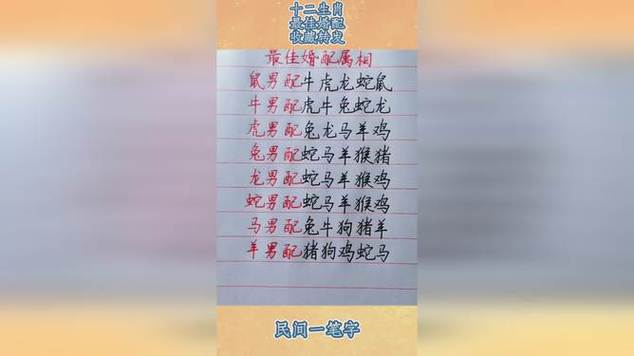 十二生肖
最佳婚配
收藏转发
最佳婚配属相
鼠男配牛虎龙蛇鼠
牛男配虎牛兔蛇龙
虎男配兔龙马羊鸡
兔男配蛇马羊猴猪
龙男配蛇马羊猴鸡
蛇男配蛇马羊猴鸡
马男配兔牛狗猪羊
羊男配猪狗鸡蛇马
民间一笔字